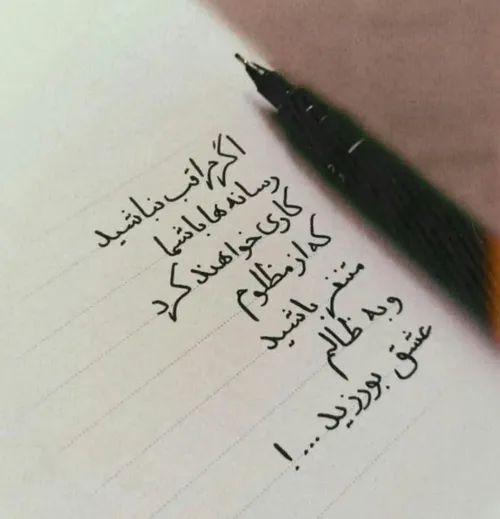 اگر مراقب نباشید
رسانه ها با شما
کاری خواهند کرد
که از مظلوم
متنفر باشید
و به ظالم
عشق بورزید...!